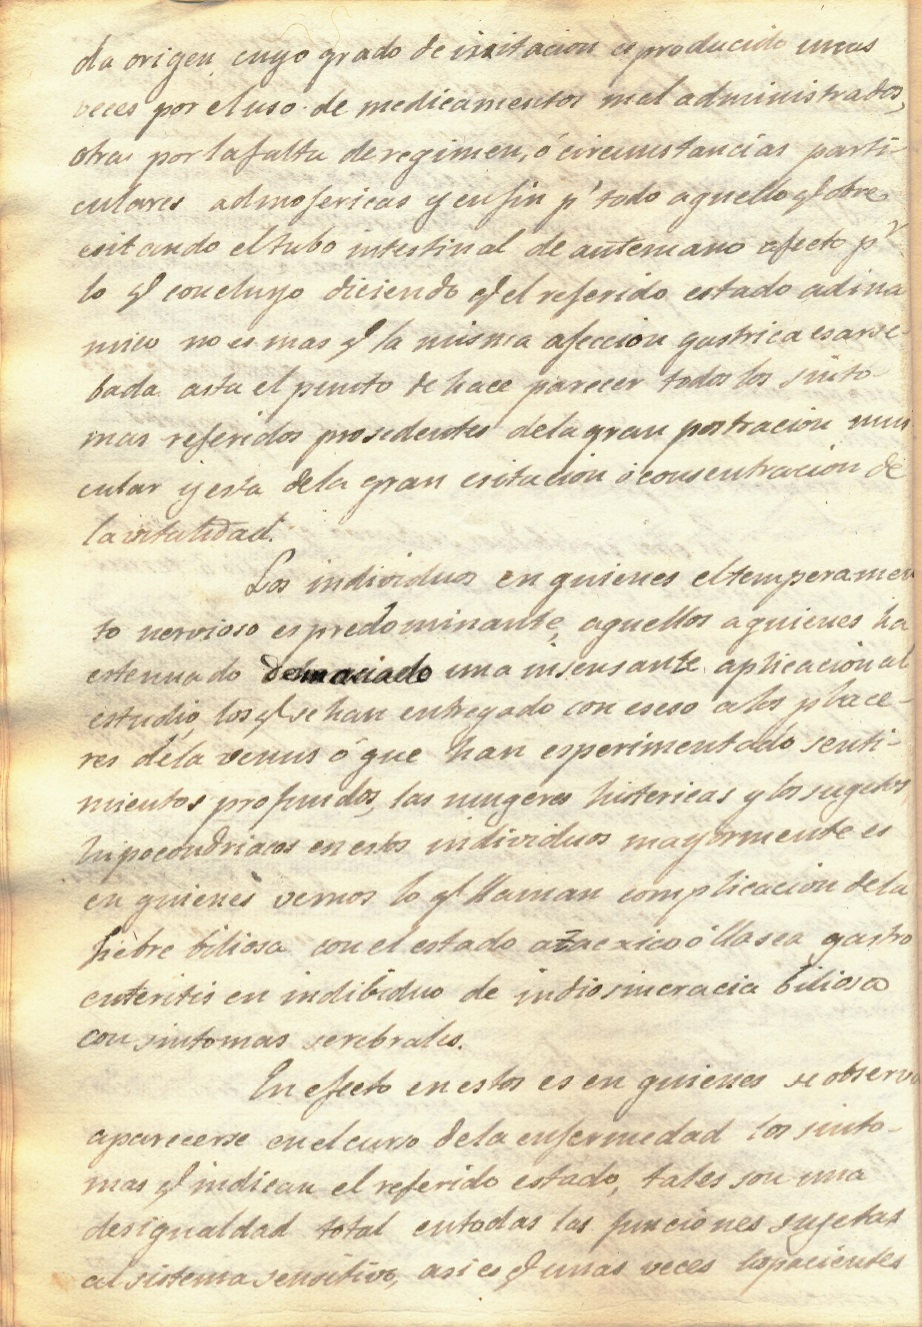 da origen, cuyo grado de irritacion es producido unas
veces por el uso de medicamentos mal administrados,
otras por la falta de regimen, ó circunstancias parti-
culares admosfericas y en fin pr todo aquello q obre
esitando el tubo intestinal de antemano afecto pr
lo q concluyo diciendo q el referido estado adina
mico no es mas q la misma afeccion gastrica esarce-
bada asta el punto de hace parecer todos los sinto-
mas referidos prosedentes de la gran postracion mus
cular y esta de la gran esitacion ó consentracion de
la vitalidad.
Los individuos en quienes el temperamen
to nervioso es predominante, aquellos aquienes ha
estenuado demaciado una insensante aplicacion al
estudio, los q se han entregado con eseso a los place-
res de la venus ó que han esperimentado senti-
mientos profundos, las mugeres histericas y los sugetos
hipocondriacos en estos individuos mayormente es
en quienes vemos lo q llaman complicacion de la
fiebre biliosa con el estado ataxico ó lla sea gastro
enteritis en indibiduo de indiosincracia biliosa
con sintomas serebrales.
En efecto en estos es en quienes se observa
aparecerse en el curso de la enfermedad los sinto-
mas q indican el referido estado, tales son una
desigualdad total en todas las funciones sugetas
al sistema sensitivo, asi es q unas veces los pacientes